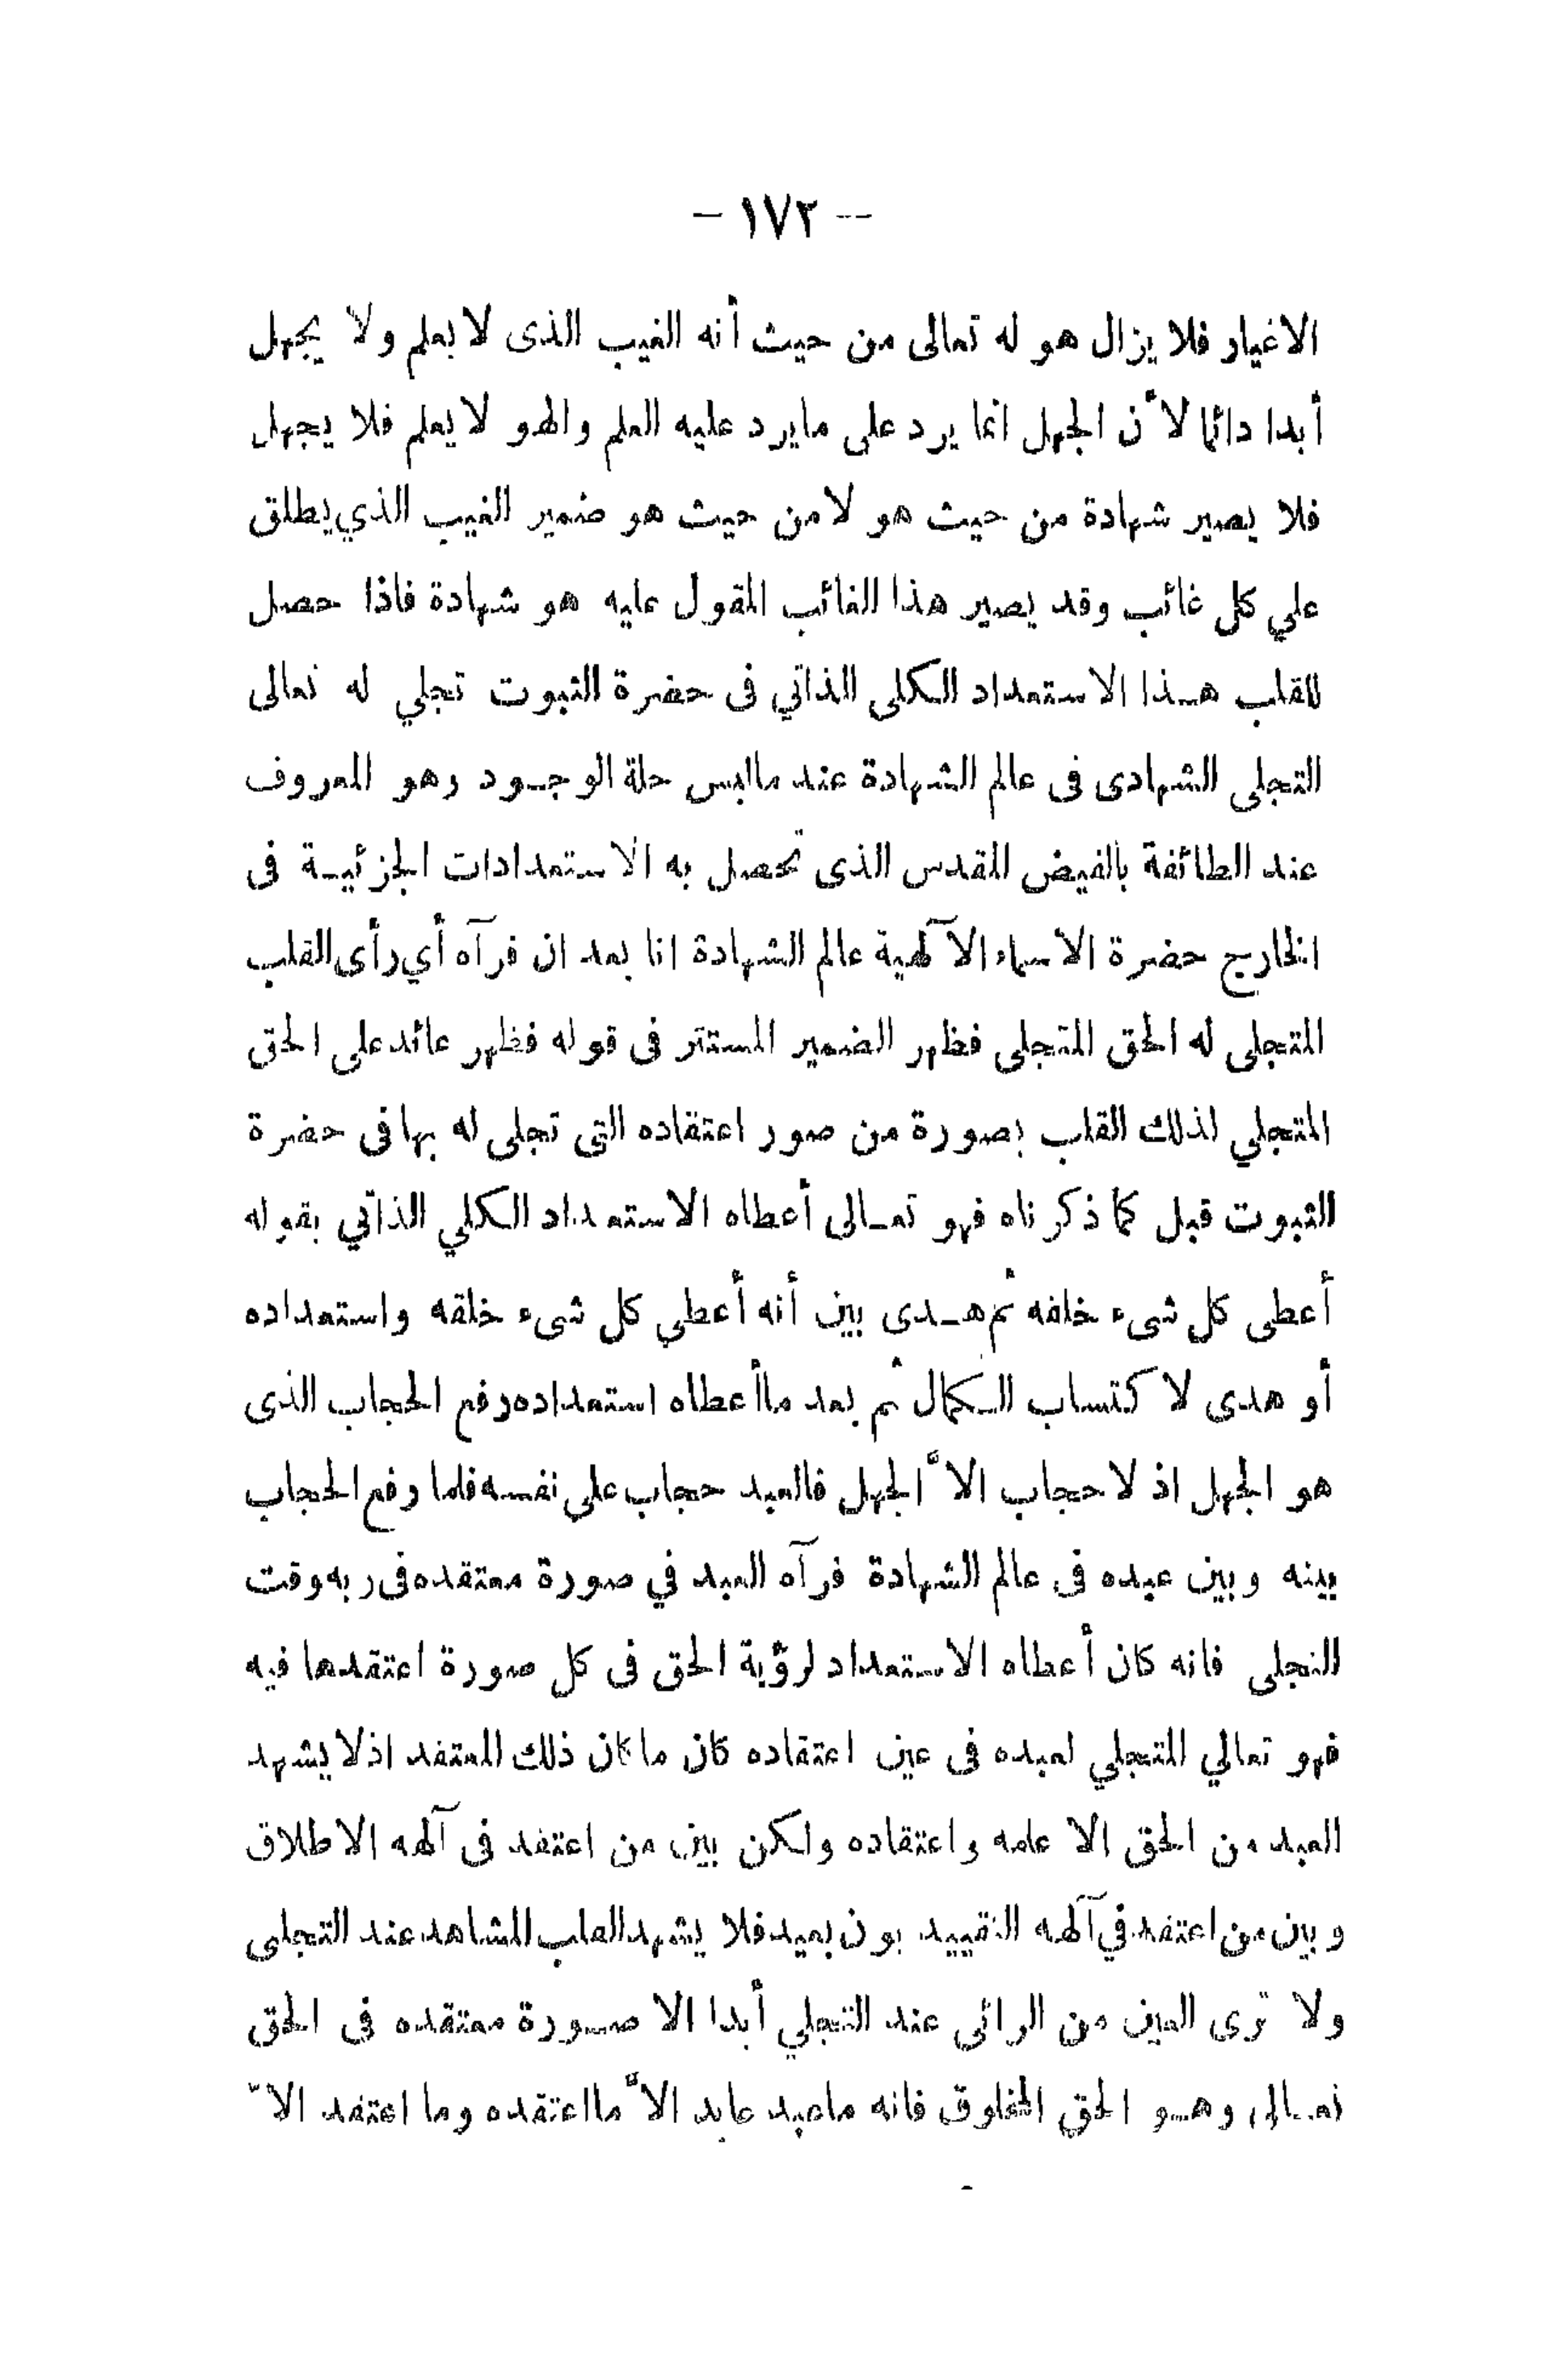 -- ١٧٢ -
الاغيار فلا يزال هو له تعالى من حيث أنه الغيب الذى لا يعلم ولا يجهل
أبدا دائما لأن الجهل انما يرد على مايرد عليه العلم والهو لا يعلم فلا يجهل
فلا يصير شهادة من حيث هو لا من حيث هو ضمير الغيب الذي يطلق
علي كل غائب وقد يصير هذا الغائب المقول عليه هو شهادة فاذا حصل
للقلب هـذا الاستعداد الكلى الذاتي فى حضرة الثبوت تجلي له تعالى
التجلى الشهادى فى عالم الشهادة عند مالبس حلة الوجـود وهو المعروف
عند الطائفة بالفيض المقدس الذى تحصل به الاستعدادات الجزئيـة فى
الخارج حضرة الأسماء الآلهية عالم الشهادة انا بعد ان فرآه أي رأى القلب
المتجلى له الحق المتجلى فظهر الضمير المستتر فى قوله فظهر عائد على الحق
المتجلي لذلك القلب بصورة من صور اعتقاده التي تجلى له بها فى حضرة
الثبوت قبل كما ذكرناه فهو تعـالى أعطاه الاستعداد الكلي الذاتي بقوله
أعطى كل شىء خلقه ثم هـدى بين أنه أعطي كل شىء خلقه واستعداده
أو هدى لا كتساب الـكمال ثم بعد ماأعطاه استعداده رفع الحجاب الذى
هو الجهل اذ لا حجاب الاّ الجهل فالعبد حجاب على نفسه فلما رفع الحجاب
بينه وبين عبده فى عالم الشهادة فرآه العبد في صورة معتقده فى ربه وقت
التجلى فانه كان أعطاه الاستعداد لرؤية الحق فى كل صورة اعتقدها فيه
فهو تعالي المتجلي لعبده فى عين اعتقاده كان ما كان ذلك المعتقد اذ لا يشهد
العبد من الحق الا علمه واعتقاده ولكن بين من اعتقد فى آلهه الاطلاق
وبين من اعتقد في آلهه التقييد بون بعيد فلا يشهد القلب المشاهد عند التجلى
ولا ترى العين من الرائى عند التجلي أبدا الا صـورة معتقده فى الحق
تعـالى وهـو الحق المخلوق فانه ماعبد عابد الاّ مااعتقده وما اعتقد الاّ